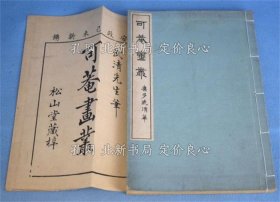 未新鐫
清先生筆
可菴畫叢
松山堂藏梓
可菴畫叢
孔网 北新书局 孔网 北新书局
定价良心 定价良心